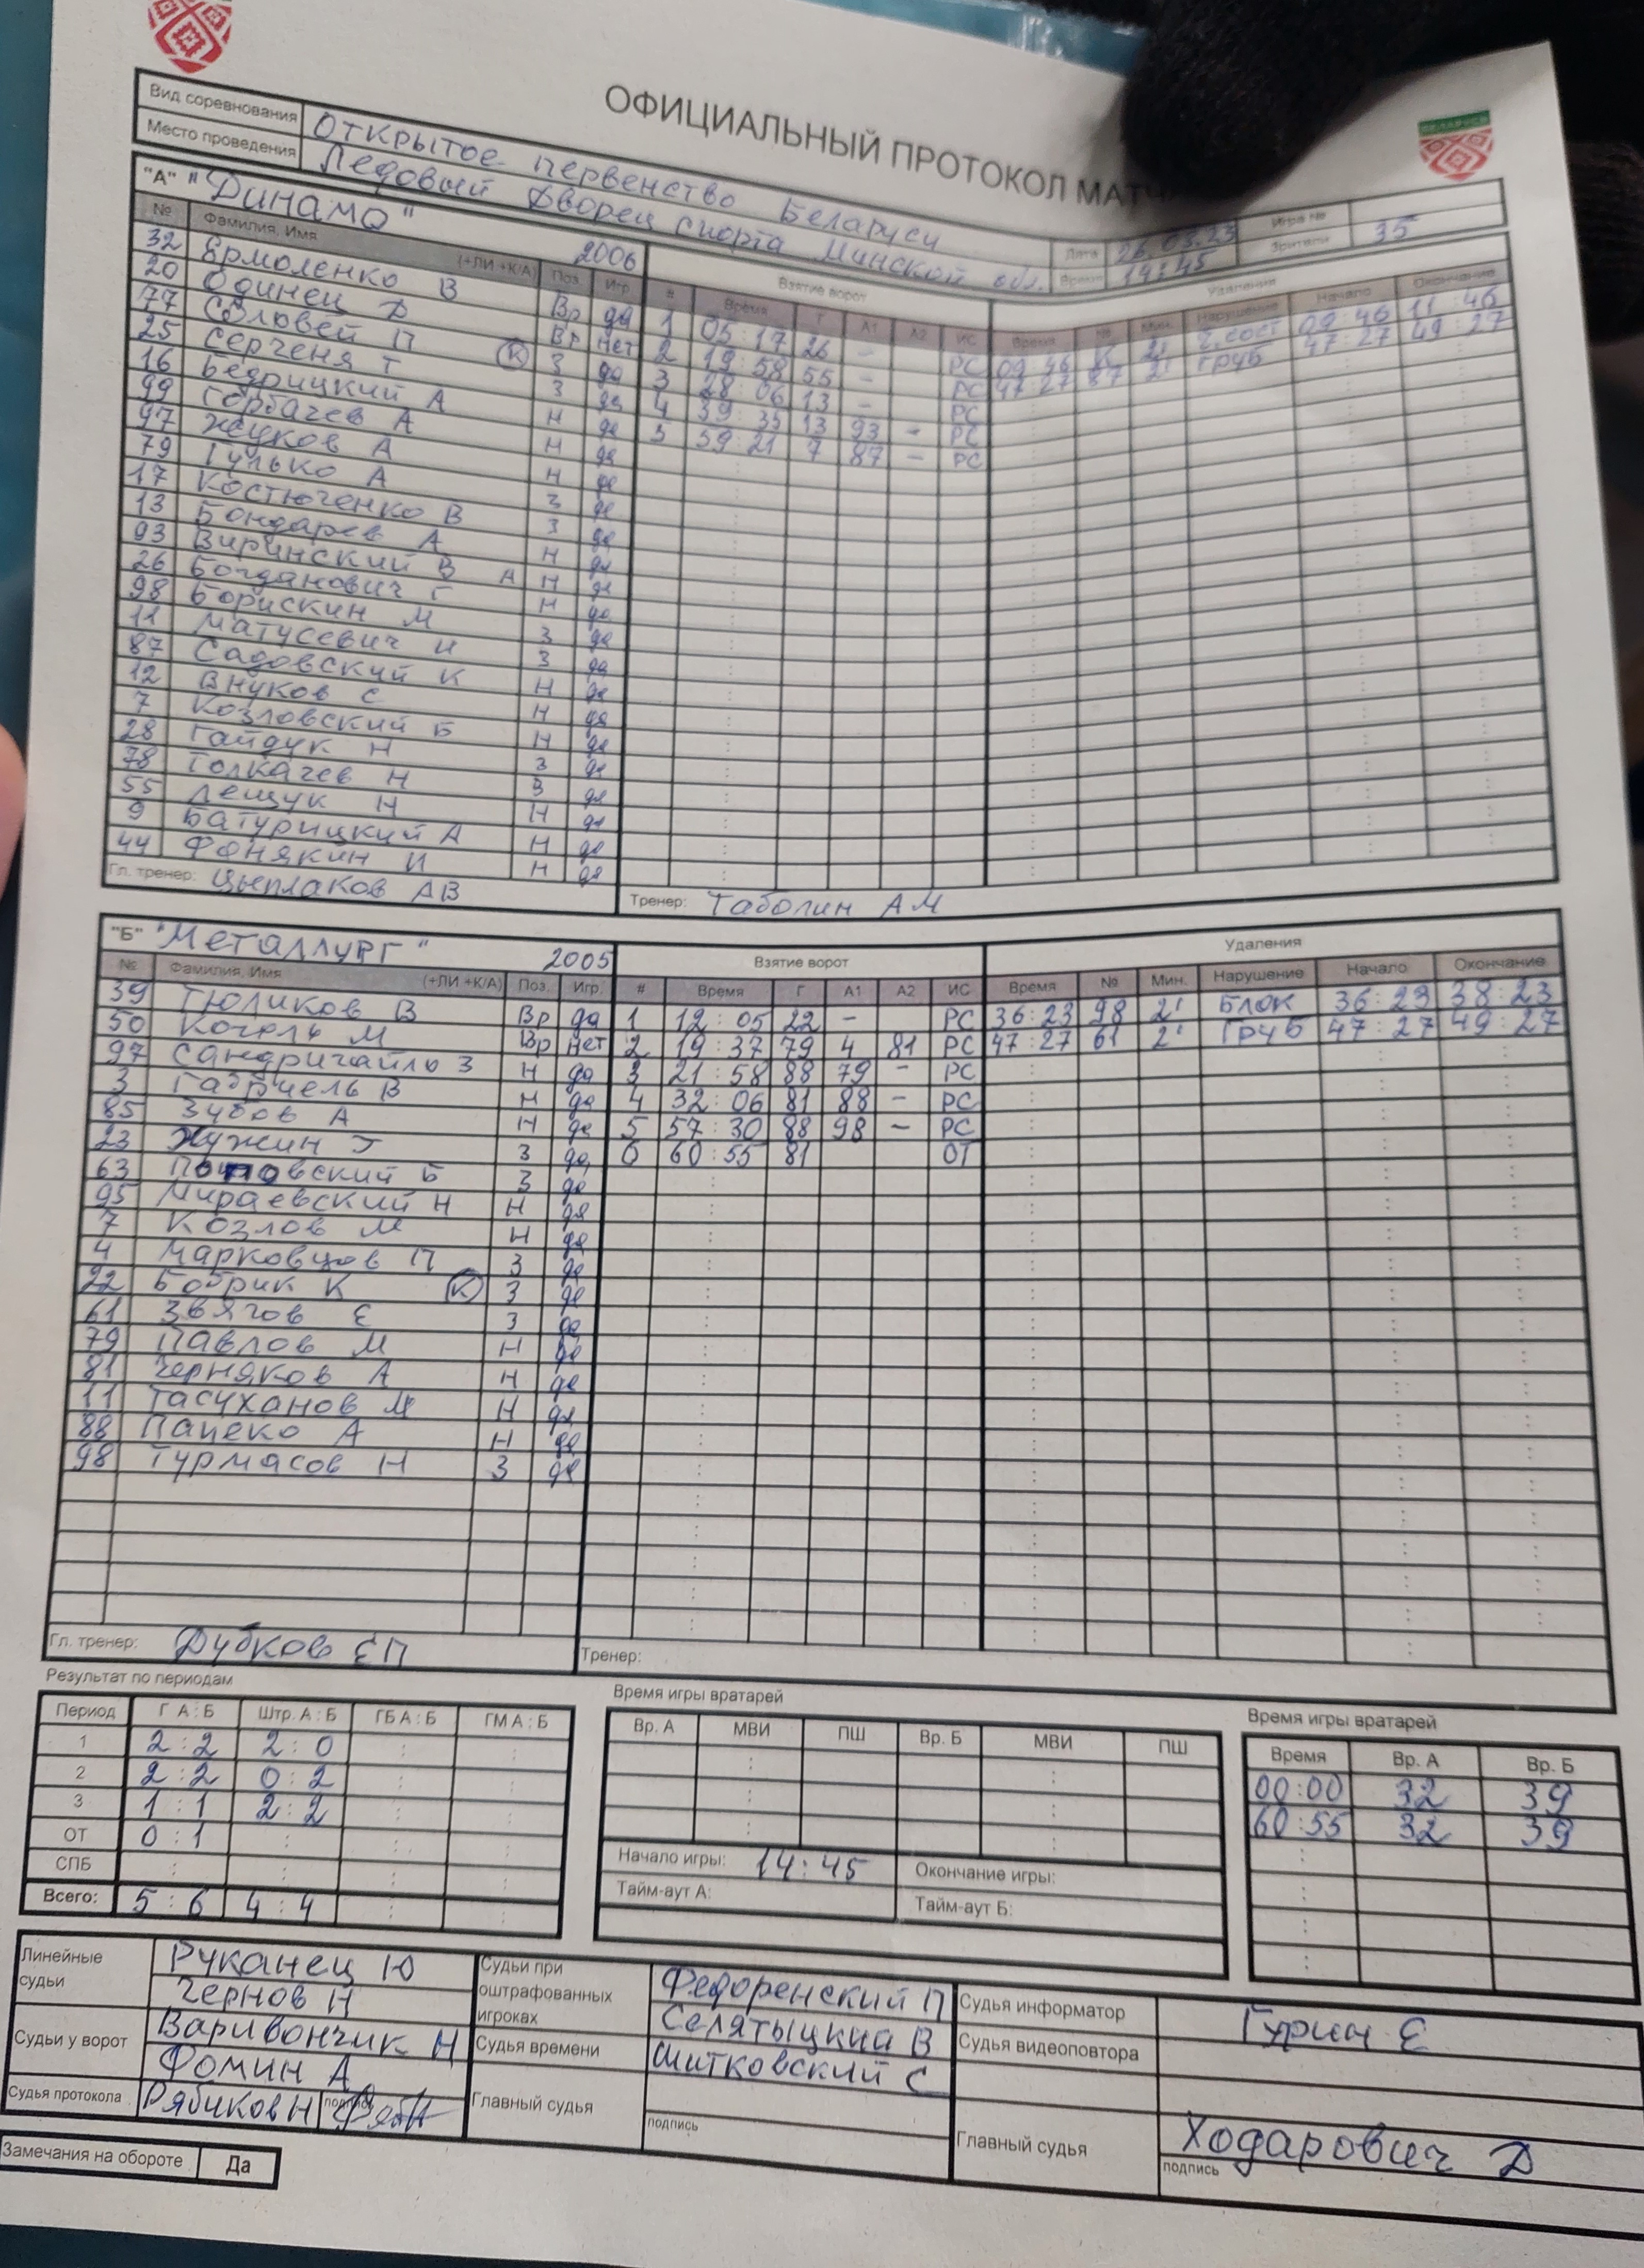 ОФИЦИАЛЬНЫЙ ПРОТОКОЛ МАТЧ
БЕЛАРУСЬ
Вид соревнования Открытое первенство Беларуси Дата 26.03.23 Игра №
Место проведения Ледовый Дворец спорта Минской обл. Время 14:45 Зрители 35
"А" "Динамо" 2006 Взятие ворот Удаления
№ Фамилия, Имя (+ЛИ +К/А) Поз. Игр. # Время Г А1 А2 ИС Время № Мин. Нарушение Начало Окончание
32 Ермоленко В Вр да 1 05:17 26 - РС 09:46 К 2' Ч.сост 09:46 11:46
20 Одинец Д Вр нет 2 19:58 55 - РС 47:27 87 2' Груб 47:27 49:27
77 Соловей П К З да 3 28:06 13 - РС
25 Серченя Т З да 4 39:35 13 93 - РС
16 Бедрицкий А Н да 5 59:21 7 87 - РС
99 Горбачев А Н да
97 Жуков А Н да
79 Гулько А З да
17 Костюченко В З да
13 Бондарев А Н да
93 Виринский В А Н да
26 Богданович Г Н да
98 Борискин М З да
11 Матусевич И З да
87 Садовский К Н да
12 Внуков С Н да
7 Козловский Б Н да
28 Гайдук Н З да
78 Толкачев Н З да
55 Лещук Н Н да
9 Батурицкий А Н да
44 Фонякин И Н да
Гл. тренер: Цыплаков АВ Тренер: Таболин АМ
"Б" "Металлург" 2005 Взятие ворот Удаления
№ Фамилия, Имя (+ЛИ +К/А) Поз. Игр. # Время Г А1 А2 ИС Время № Мин. Нарушение Начало Окончание
39 Тюликов В Вр да 1 12:05 22 - РС 36:23 98 2' Блок 36:23 38:23
50 Когель М Вр нет 2 19:37 79 4 81 РС 47:27 61 2' Груб 47:27 49:27
97 Сандригайло З Н да 3 21:58 88 79 - РС
3 Габриель В Н да 4 32:06 81 88 - РС
85 Зубов А Н да 5 57:30 88 98 - РС
23 Жужин Г З да 6 60:55 81 ОТ
63 Б З да
95 Мираевский Н Н да
7 Козлов М Н да
4 Марковцов П З да
22 Бобрик К К З да
61 Звягов Е З да
79 Павлов М Н да
81 Черняков А Н да
11 Тасуханов М Н да
88 Пацеко А Н да
98 Турмасов Н З да
Гл. тренер: Дубков ЕП Тренер:
Результат по периодам
Период Г А : Б Штр. А : Б ГБ А : Б ГМ А : Б
1 2:2 2:0
2 2:2 0:2
3 1:1 2:2
ОТ 0:1
СПБ
Всего: 5:6 4:4
Время игры вратарей
Вр. А МВИ ПШ Вр. Б МВИ ПШ
Начало игры: 14:45 Окончание игры:
Тайм-аут А: Тайм-аут Б:
Время игры вратарей
Время Вр. А Вр. Б
00:00 32 39
60:55 32 39
Линейные судьи Руканец Ю
Чернов Н
Судьи у ворот Варивончик Н
Фомин А
Судья протокола Рябиков Н подпись
Судьи при оштрафованных игроках Федоренский П
Селятыцкий В
Судья времени Шитковский С
Главный судья подпись
Судья информатор Гурин Е
Судья видеоповтора
Главный судья Ходарович Д
подпись
Замечания на обороте Да